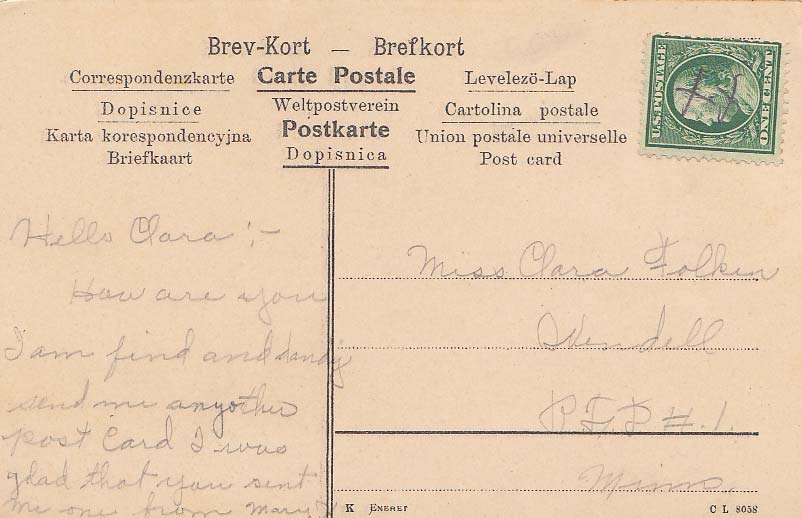 Brev-Kort — Brefkort
Correspondenzkarte Carte Postale Levelezö-Lap
Dopisnice Weltpostverein Cartolina postale
Karta korespondencyjna Postkarte Union postale universelle
Briefkaart Dopisnica Post card
U.S. POSTAGE
Hello Clara :-
How are you
I am find and dandy
send me anyother
post Card I was
glad that you sent
me one from Mary
Miss Clara Folken
Wendell
R F D # .1.
Minn.
K ENERET
C L 8058